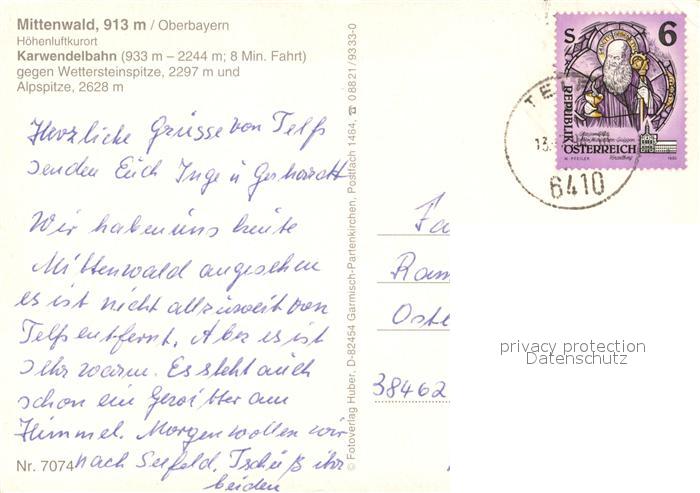 Mittenwald, 913 m / Oberbayern
Höhenluftkurort
Karwendelbahn (933 m – 2244 m; 8 Min. Fahrt)
gegen Wettersteinspitze, 2297 m und
Alpspitze, 2628 m
Herzliche Grüsse von Telfs
senden Euch Inge u Gerhardt
Wir haben uns heute
Mittenwald angesehen
es ist nicht allzuweit von
Telfs entfernt. Aber es ist
sehr warm. Es steht auch
schon ein Gewitter am
Himmel. Morgen wollen wir
nach Seefeld. Tschüß ihr
beiden
Nr. 7074
© Fotoverlag Huber, D-82454 Garmisch-Partenkirchen, Postfach 1464, ☎ 0 88 21/93 33-0
S 6
REPUBLIK
ÖSTERREICH
TELF
13.
6410
Fa
Ram
Oste
38462
privacy protection
Datenschutz